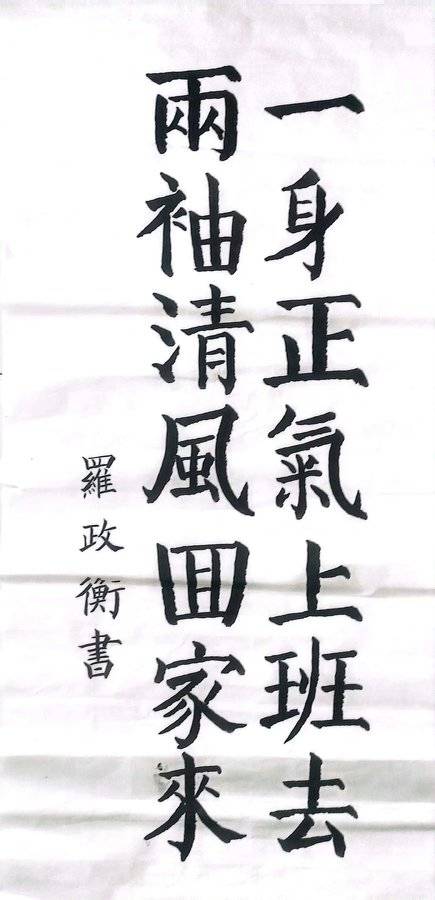 一身正氣上班去
兩袖清風囬家來
羅政衡書